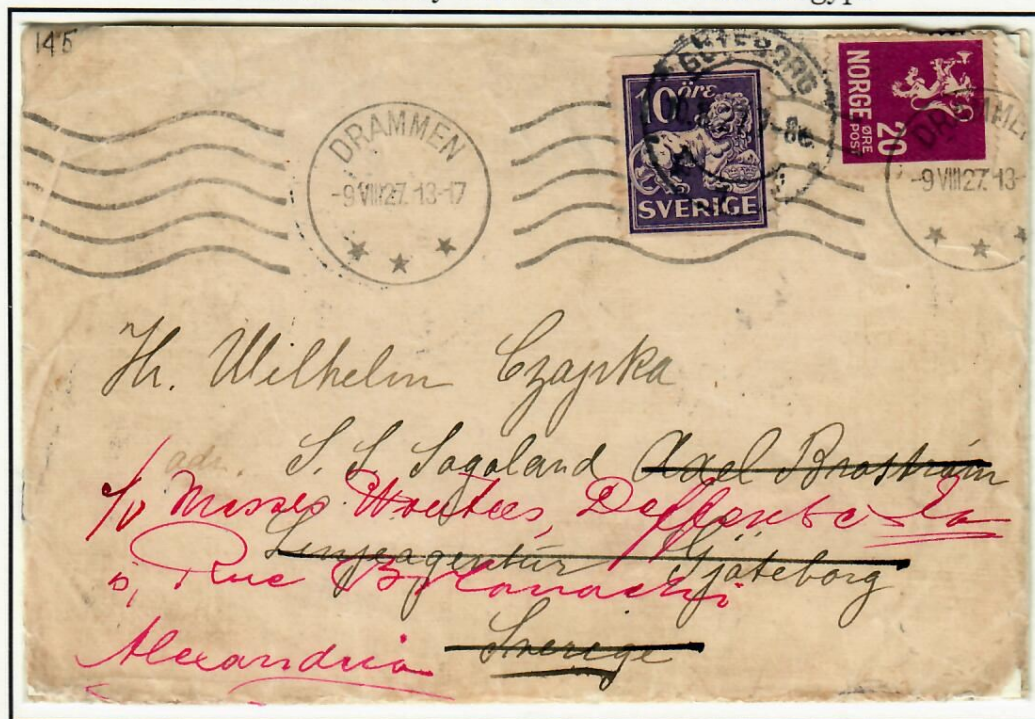 145
DRAMMEN
-9 VIII 27. 13-17
10 öre
SVERIGE
GÖTEBORG
NORGE
20
ØRE
POST
DRAMMEN
-9 VIII 27. 13-
Hr. Wilhelm Czapka
adr. S. S. Sagoland Axel Broström
c/o Messrs Wouters, Deffense & Co
Linjeagentur Göteborg
Rue
Alexandria
Sverige